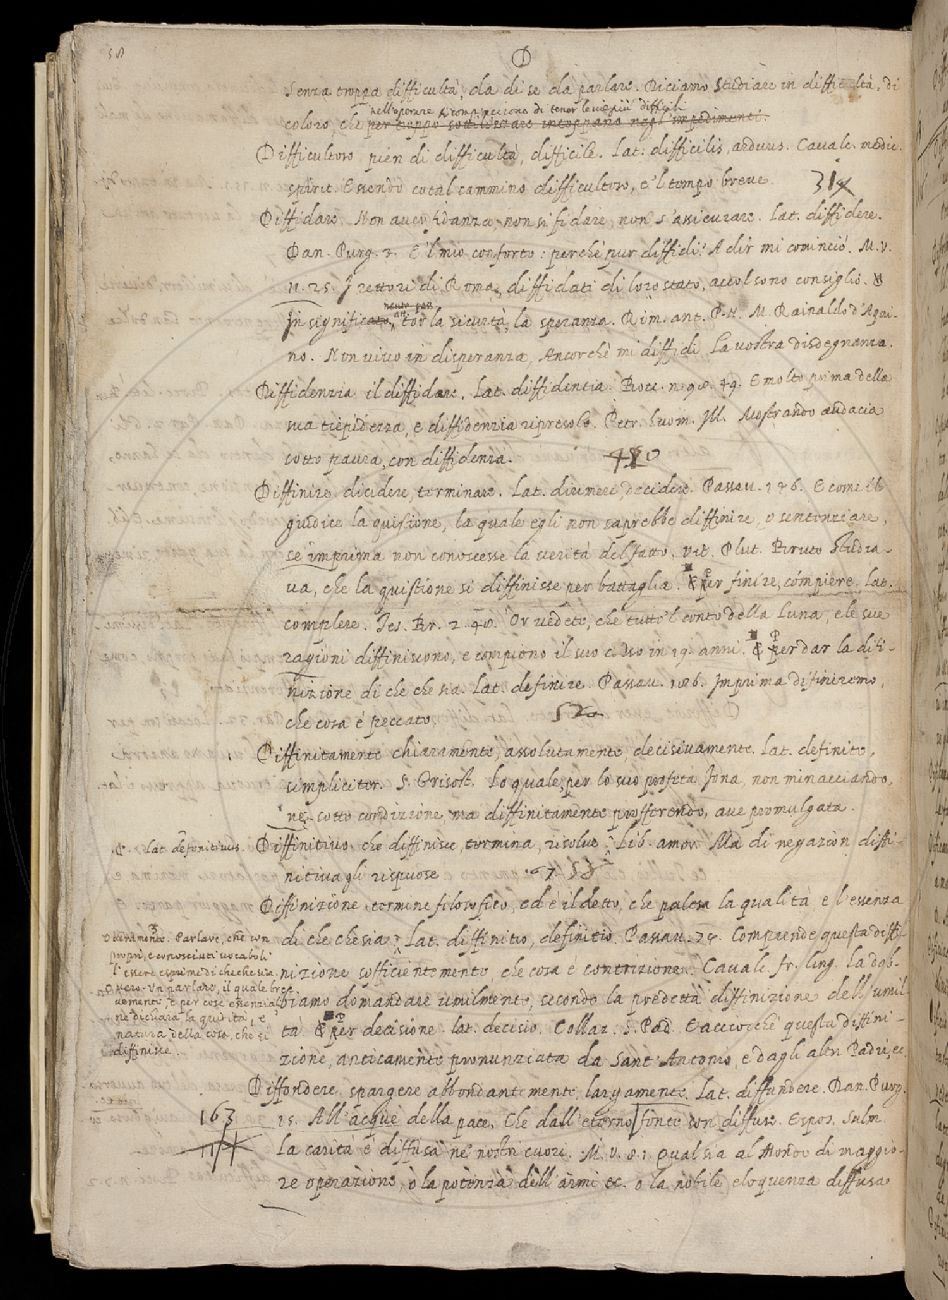 58
D
Senza troppa difficultà, da di se da parlare. Diciamo studiare in difficultà, di
nell'operare si compiacciono di tener le vie più difficili
coloro, che per troppo sottilizzare intoppano negl'impedimenti.
Difficultoso, pien di difficultà, difficile. Lat. difficilis, arduus. Cavalc. medic.
spirit. Essendo cotal cammino difficultoso, e 'l tempo breve
Diffidare. Non aver fidanza, non si fidare, non s'assicurare. Lat. diffidere.
Dan. Purg. 3. E 'l mio conforto: perchè pur diffidi? A dir mi cominciò. M. V.
n. 25. I rettori di Roma, diffidati di loro stato, accolsono consiglio.
In significato, tor la sicurtà, la speranza. Rim. ant. P. N. M. Rainaldo d'Aqui-
no. Non vivo in disperanza, Ancorchè mi diffidi La vostra disdegnanza.
Diffidenzia il diffidare. Lat. diffidentia. Bocc. n. 98. 49. E molto prima della
sua tiepidezza, e diffidenzia ripreso. Petr. huom. Ill. Mostrando audacia
sotto paura, con diffidenza.
480
Diffinire, dicidere, terminare. Lat. dirimere, decidere. Passav. 126. E come il
giudice la quistione, la quale egli non saprebbe diffinire, o sentenziare,
se imprima non conoscesse la verità del fatto. Vit. Plut. Bruto Studia-
va, che la quistione si diffinisse per battaglia. Per finire, compiere. Lat.
complere. Tes. Br. 2. 40. Or vedete, che tutto 'l conto della Luna, e le sue
ragioni diffiniscono, e compiono il suo corso in 19. anni. Per dar la difi-
nizione di che che sia. Lat. definire. Passav. 126. Imprima difiniremo,
che cosa è peccato.
Diffinitamente chiaramente, assolutamente, decisivamente. Lat. definite,
simpliciter. S. Grisost. Lo quale, per lo suo profeta Jona, non minacciando,
ne sotto condizione, ma diffinitamente profferendo, ave promulgata.
Lat. definitivus.
Diffinitivo, che diffinisce, termina, risolve. Lib. amor. Ma di negazion diffi-
nitiva gli rispuose
Diffinizione termine filosofico, ed è il detto, che palesa la qualità, e l'essenza
di che che sia. Lat. diffinitio, definitio. Passav. 75. Comprende questa diffi-
nizione sofficientemente, che cosa è contrizione. Cavalc. fr. ling. La dob-
biamo domandare umilmente, secondo la predetta diffinizione dell'umil-
tà. Per decisione. lat. decisio. Collaz. S. Pad. E acciocchè questa diffini-
zione, anticamente pronunziata da Sant'Antonio, e dagli altri Padri, ec.
Parlare, che con
propri, e conosciuti vocaboli
l'essere esprime di checchesia.
overo. Un parlare, il quale breve
vemente, e per cose essenziali
ne dichiara la quidità, e
natura della cosa, che si
diffinisce.
Diffondere, spargere abbondantemente, largamente. Lat. diffundere. Dan. Purg.
163
15. All'acque della pace, Che dall'eterno fonte son diffuse. Espos. Salm.
La carità è diffusa ne' nostri cuori. M. V. 8. 1. Qual sia al Mondo di maggio-
re operazione, o la potenza dell'armi ec. o la nobile eloquenza diffusa